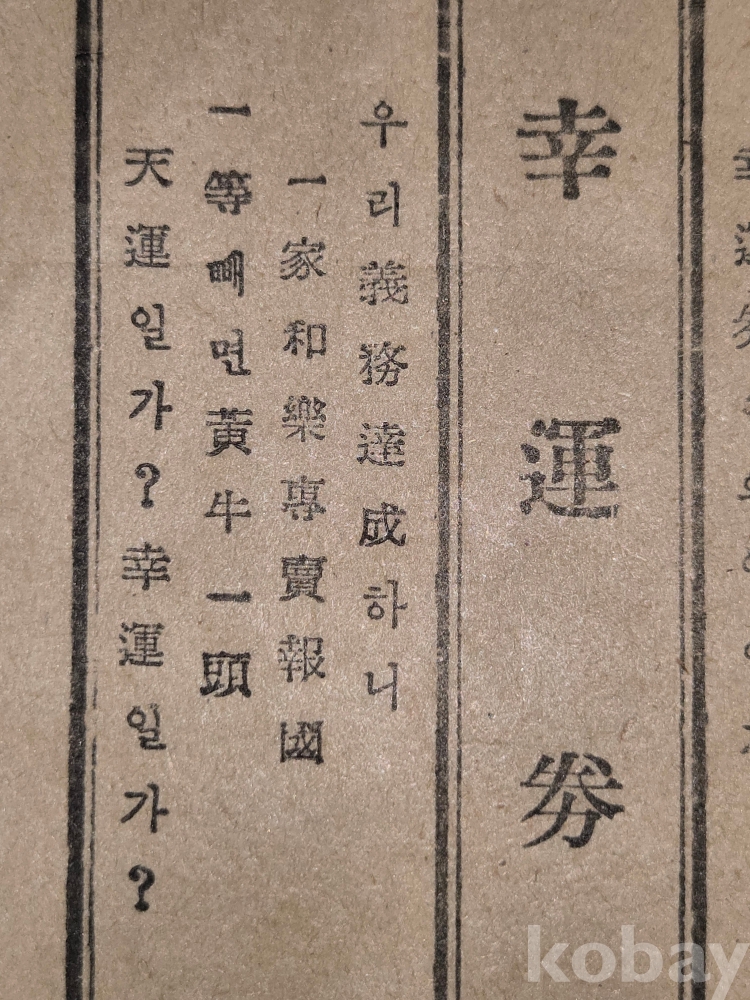 幸運券
우리義務達成하니
一家和樂專賣報國
一等빼면黃牛一頭
天運일가?幸運일가?
kobay